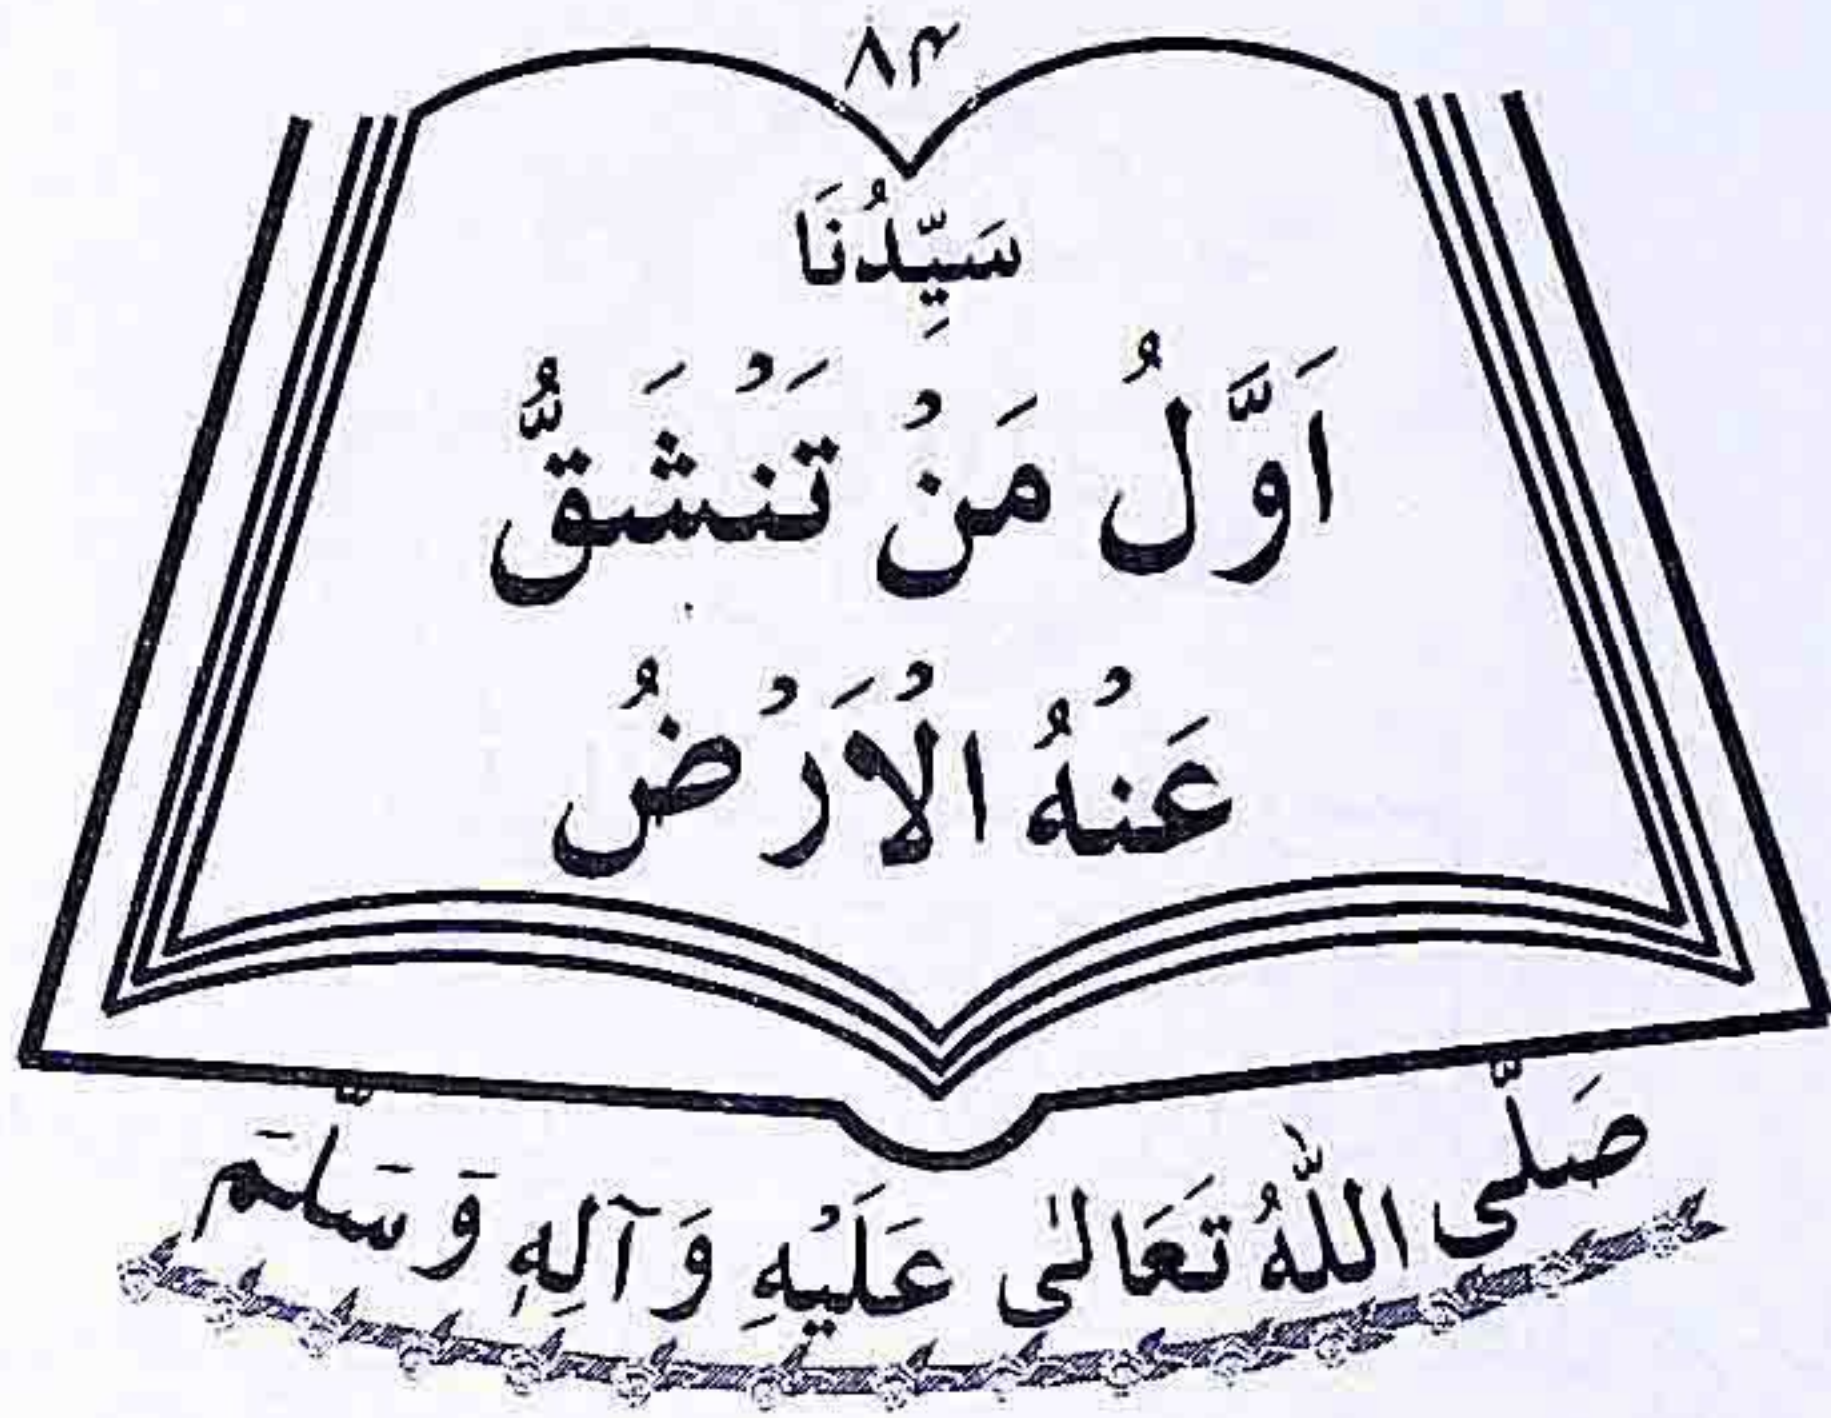 ۸۴
سَيِّدُنَا
اَوَّلُ مَنْ تَنْشَقُّ
عَنْهُ الْاَرْضُ
صَلَّى اللّٰهُ تَعَالٰى عَلَيْهِ وَآلِهٖ وَسَلَّمَ